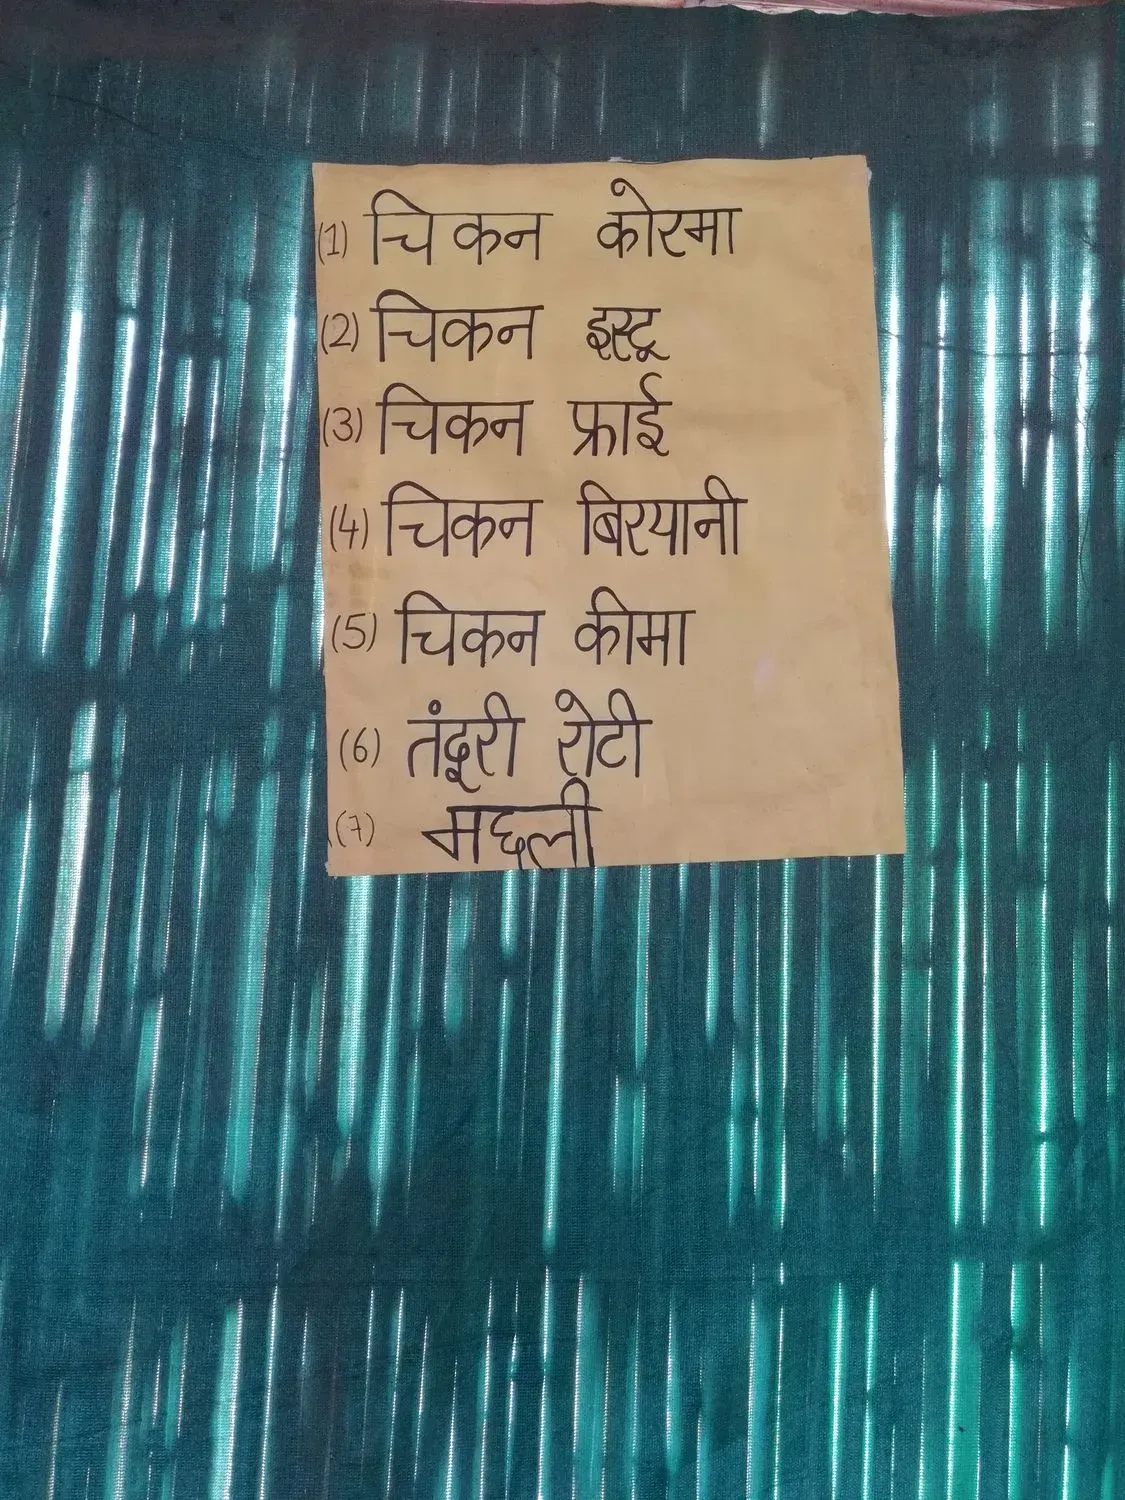 (1) चिकन कोरमा
(2) चिकन इस्टू
(3) चिकन फ्राई
(4) चिकन बिरयानी
(5) चिकन कीमा
(6) तंदूरी रोटी
(7) मछली